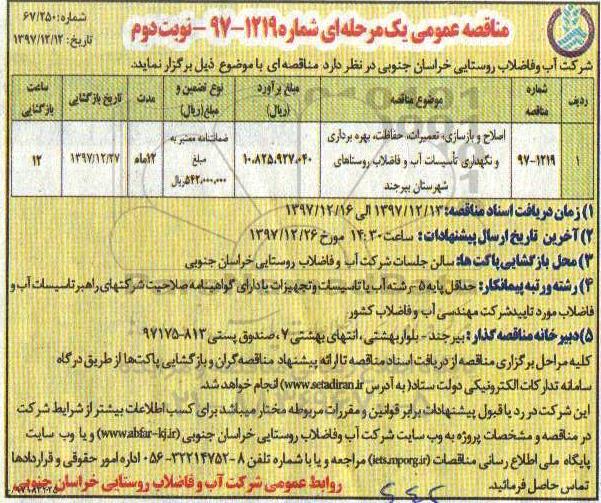 شماره: ۶۷/۲۵۰
تاریخ: ۱۳۹۷/۱۲/۱۲
مناقصه عمومی یک مرحله ای شماره ۱۲۱۹-۹۷ - نوبت دوم
شرکت آب وفاضلاب روستایی خراسان جنوبی در نظر دارد مناقصه ای با موضوع ذیل برگزار نماید.
ردیف | شماره مناقصه | موضوع مناقصه | مبلغ برآورد (ریال) | نوع تضمین و مبلغ(ریال) | مدت | تاریخ بازگشایی | ساعت بازگشایی
۱ | ۹۷-۱۲۱۹ | اصلاح و بازسازی، تعمیرات، حفاظت، بهره برداری و نگهداری تأسیسات آب و فاضلاب روستاهای شهرستان بیرجند | ۱۰،۸۲۵،۹۲۷،۰۴۰ | ضمانتنامه معتبر به مبلغ ۵۴۲،۰۰۰،۰۰۰ریال | ۱۲ماه | ۱۳۹۷/۱۲/۲۷ | ۱۲
۱) زمان دریافت اسناد مناقصه: ۱۳۹۷/۱۲/۱۳ الی ۱۳۹۷/۱۲/۱۶
۲) آخرین تاریخ ارسال پیشنهادات: ساعت ۱۴:۳۰ مورخ ۱۳۹۷/۱۲/۲۶
۳) محل بازگشایی پاکت ها: سالن جلسات شرکت آب و فاضلاب روستایی خراسان جنوبی
۴) رشته ورتبه پیمانکار: حداقل پایه ۵-رشته آب یا تاسیسات وتجهیزات یا دارای گواهینامه صلاحیت شرکتهای راهبر تاسیسات آب و
فاضلاب مورد تایید شرکت مهندسی آب و فاضلاب کشور
۵) دبیرخانه مناقصه گذار: بیرجند - بلوار بهشتی، انتهای بهشتی ۷، صندوق پستی ۸۱۳-۹۷۱۷۵
کلیه مراحل برگزاری مناقصه از دریافت اسناد مناقصه تا ارائه پیشنهاد مناقصه گران و بازگشایی پاکت‌ها از طریق درگاه
سامانه تدارکات الکترونیکی دولت ستاد( به آدرس www.setadiran.ir) انجام خواهد شد.
این شرکت در رد یا قبول پیشنهادات برابر قوانین و مقررات مربوطه مختار میباشد برای کسب اطلاعات بیشتر از شرایط شرکت
در مناقصه و مشخصات پروژه به وب سایت شرکت آب وفاضلاب روستایی خراسان جنوبی (www.abfar-kj.ir) و یا وب سایت
پایگاه ملی اطلاع رسانی مناقصات (iets.mporg.ir) مراجعه و یا با شماره تلفن ۸-۳۲۲۱۴۷۵۲-۰۵۶ اداره امور حقوقی و قراردادها
تماس حاصل فرمائید.
روابط عمومی شرکت آب و فاضلاب روستایی خراسان جنوبی